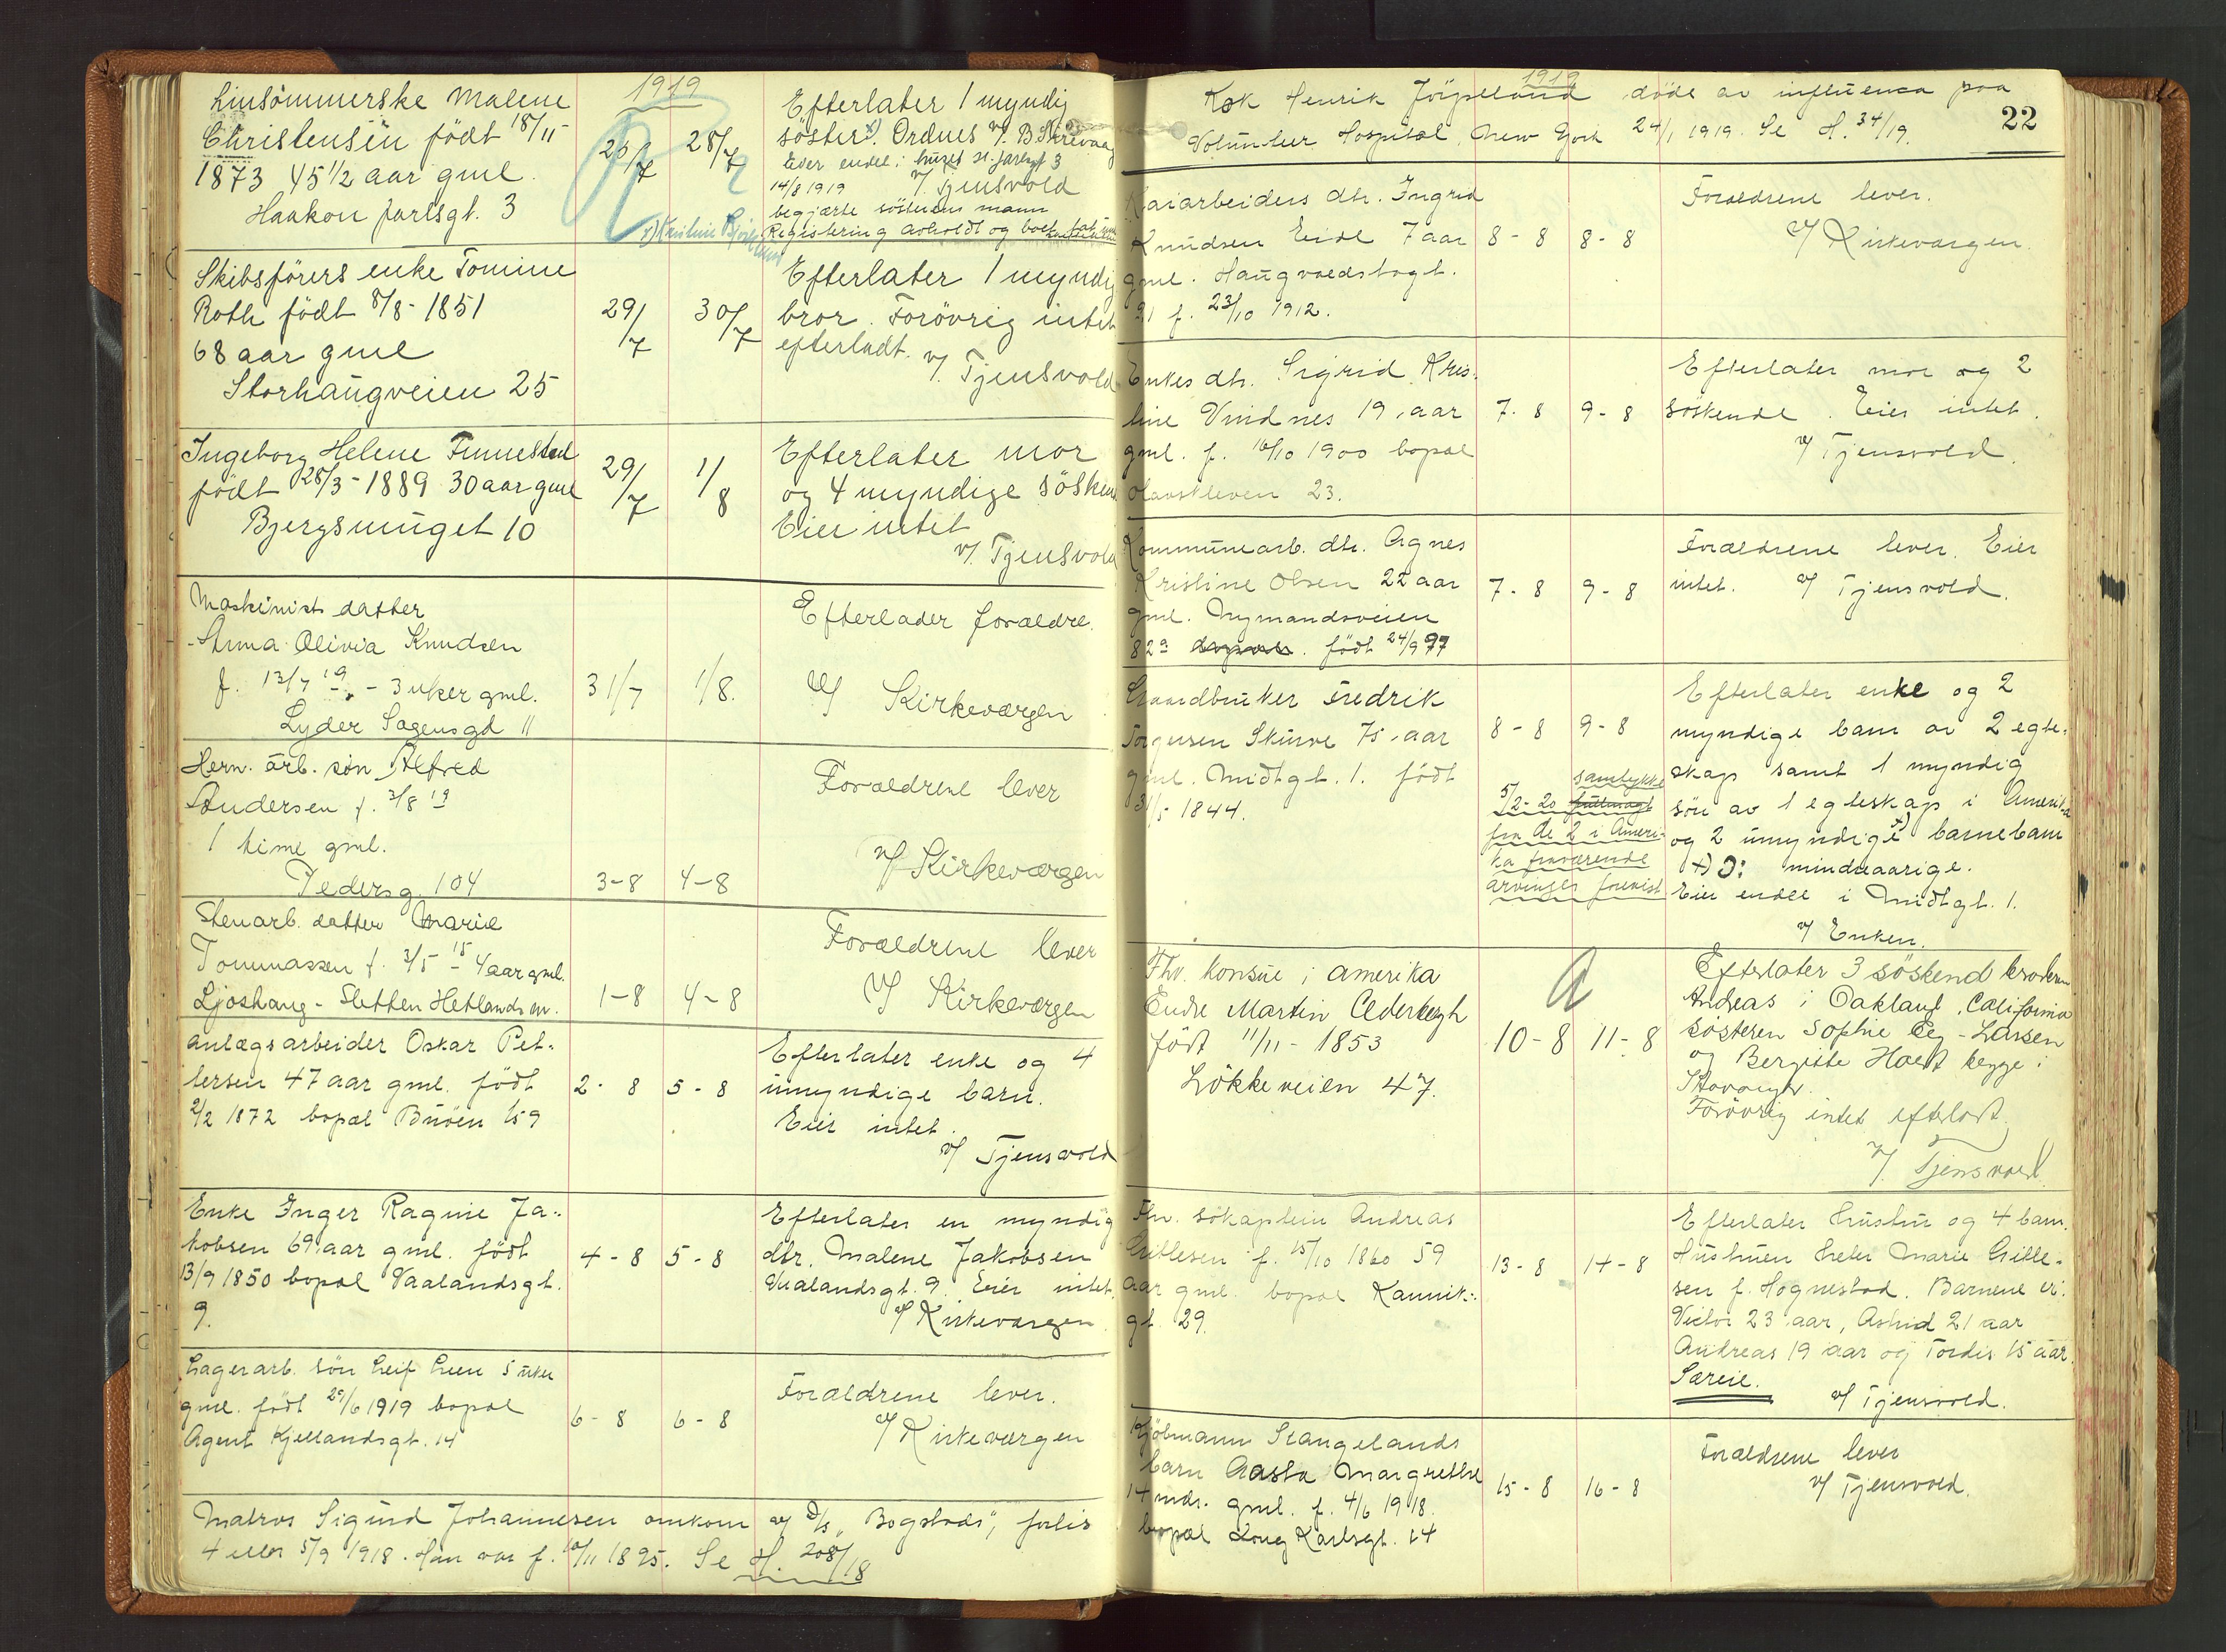 1919
Linsömmerske Malene
Christensen födt 18/11
1873 45 1/2 aar gml.
Haakon Jarlsgt. 3
25/7
28/7
Efterlater 1 myndig
söster x). Ordnes v/. B. Skrevaag
Eier endel i huset H. Jarlsgt 3
14/8 1919 v/. Tjensvold
begjærte sösterens mann
Registering avholdt og boet
x) Kristine
Skibsförers enke Tomine
Roth födt 8/8 - 1851
68 aar gml
Storhaugveien 25
29/7
30/7
Efterlater 1 myndig
bror. Forövrig intet
efterladt.
v/. Tjensvold
Ingeborg Helene Finnestad
födt 28/3 - 1889 30 aar gml
Bjergsmuget 10
29/7
1/8
Efterlater mor
og 4 myndige sösken
Eier intet
v/. Tjensvold
Maskinists datter
Anna Olivia Knudsen
f. 13/7 19 - 3 uker gml.
Lyder Sagensgd 11
31/7
1/8.
Efterlader forældre.
v/ Kirkeværgen
Herm. arb. sön Alfred
Andersen f. 3/8 19
1 time gml.
Pedersg. 104
3-8
4-8
Forældrene lever
v/ Kirkeværgen
Stenarb. datter Marie
Tommassen f. 3/5 - 15 4 aar gml.
Ljoshaug - Sletten Hetlands
1-8
4-8
Forældrene lever
v/ Kirkeværgen
Anlægsarbeider Oskar Pet-
tersen 47 aar gml. födt
2/2 1872 bopæl Buöen 159
2-8
5-8
Efterlater enke og 4
umyndige barn.
Eier intet.
v/ Tjensvold
Enke Inger Ragnie Ja-
kobsen 69 aar gml. födt
13/9 1850 bopæl Vaalandsgt.
9.
4-8
5-8
Efterlater en myndig
dtr. Malene Jakobsen
Vaalandsgt. 9. Eier intet.
v/ Kirkeværgen
Lagerarb. sön Leif Lien 5 uker
gml. födt 29/6 1919 bopæl
Agent Kjellandsgt. 14
6-8
6-8
Forældrene lever.
v/ Kirkeværgen
Matros Sigurd Johannesen omkom av D/s „Bogstads" forlis
4 eller 5/9 1918. Han var f. 10/11 1895. Se H. 208/18
1919
22
Kok Henrik Jörpeland döde av influenca paa
Volunteer Hospital, New York 24/1 1919. Se H. 34/19.
Kaiarbeiders dtr. Ingrid
Knudsen Eide 7 aar
gml. Haugvaldstagt.
21 f. 23/10 1912.
8-8
8-8
Forældrene lever.
v/ Kirkeværgen.
Enkes dtr. Sigrid Kris-
tine Vindnes 19 aar
gml. f. 16/10 1900 bopæl
Olavskleven 23.
7-8
9-8
Efterlater mor og 2
söskende. Eier intet.
v/ Tjensvold.
Kommunearb. dtr. Agnes
Kristine Olsen 22 aar
gml. Nymandsveien
82a födt 24/9 97
7-8
9-8
Forældrene lever. Eier
intet. v/ Tjensvold.
Gaardbruker Fredrik
Torgersen Skurve 75 aar
gml. Midtgt. 1. födt
31/5 1844.
8-8
9-8
5/2-20 samtykke
fuldmagt
fra de 2 i Ameri-
ka fraværende
arvinger forevist
Efterlater enke og 2
myndige barn av 2 egte-
skap samt 1 myndig
sön av 1 egteskap i Amerika
og 2 umyndige x) barnebarn
x) ɔ: mindreaarige.
Eier endel i Midtgt. 1.
v/ Enken.
Fhv. Konsul i Amerika
Endre Martin Cederbergh
födt 11/11 - 1853
Lökkeveien 47.
10-8
11-8
Efterlater 3 söskend broderen
Andreas i Oakland, California
sösteren Sophie Eeg-Larsen
og Bergitte Holst begge i
Stavanger.
Forövrig intet efterladt.
v/. Tjensvold
Fhv. sökaptein Andreas
Gillesen f. 15/10 1860 59
aar gml. bopæl Kannik-
gt. 29.
13-8
14-8
Efterlater hustru og 4 barn.
Hustruen heter Marie Gille-
sen f. Hognestad. Barnene er:
Victor 23 aar, Astrid 21 aar
Andreas 19 aar og Tordis 15 aar.
Særeie.
v/ Tjensvold.
Kjöbmann Stangelands
barn Aasta Margrethe
14 mdr. gml. f. 4/6 1918.
bopæl Kong Karlsgt. 14
15-8
16-8
Forældrene lever
v/ Tjensvold.